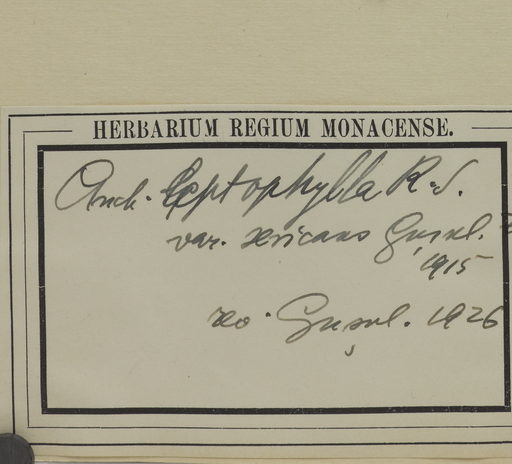 HERBARIUM REGIUM MONACENSE.
Anch. leptophylla R.S.
var. sericans Guşul.
1915
rev. Guşul. 1926